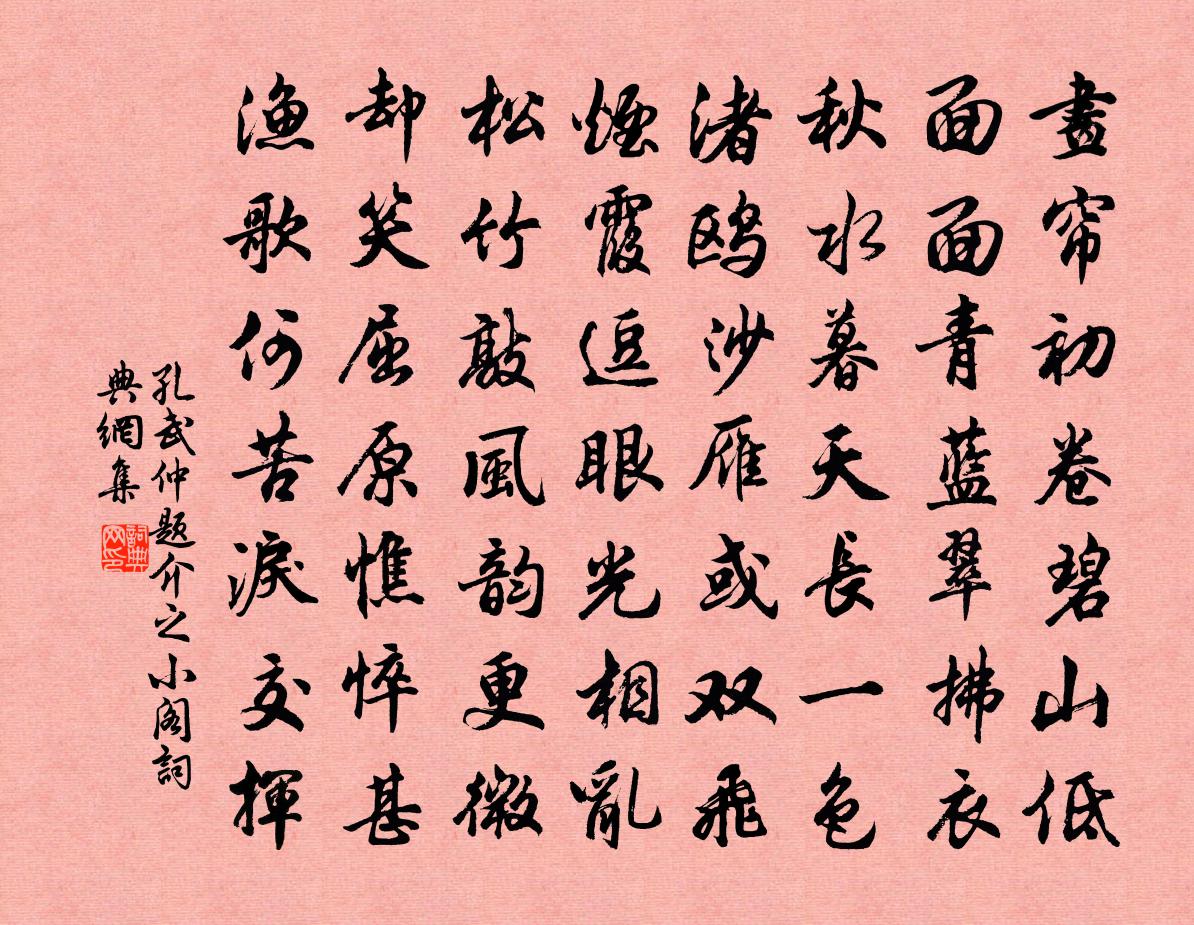 畫帘初卷碧山低
面面青藍翠拂衣
秋水暮天長一色
渚鸥沙雁或双飛
煙霞逗眼光相亂
松竹敲風韵更微
却笑屈原憔悴甚
漁歌何苦淚交揮
孔武仲題介之小阁詞
典網集
詞典
网印